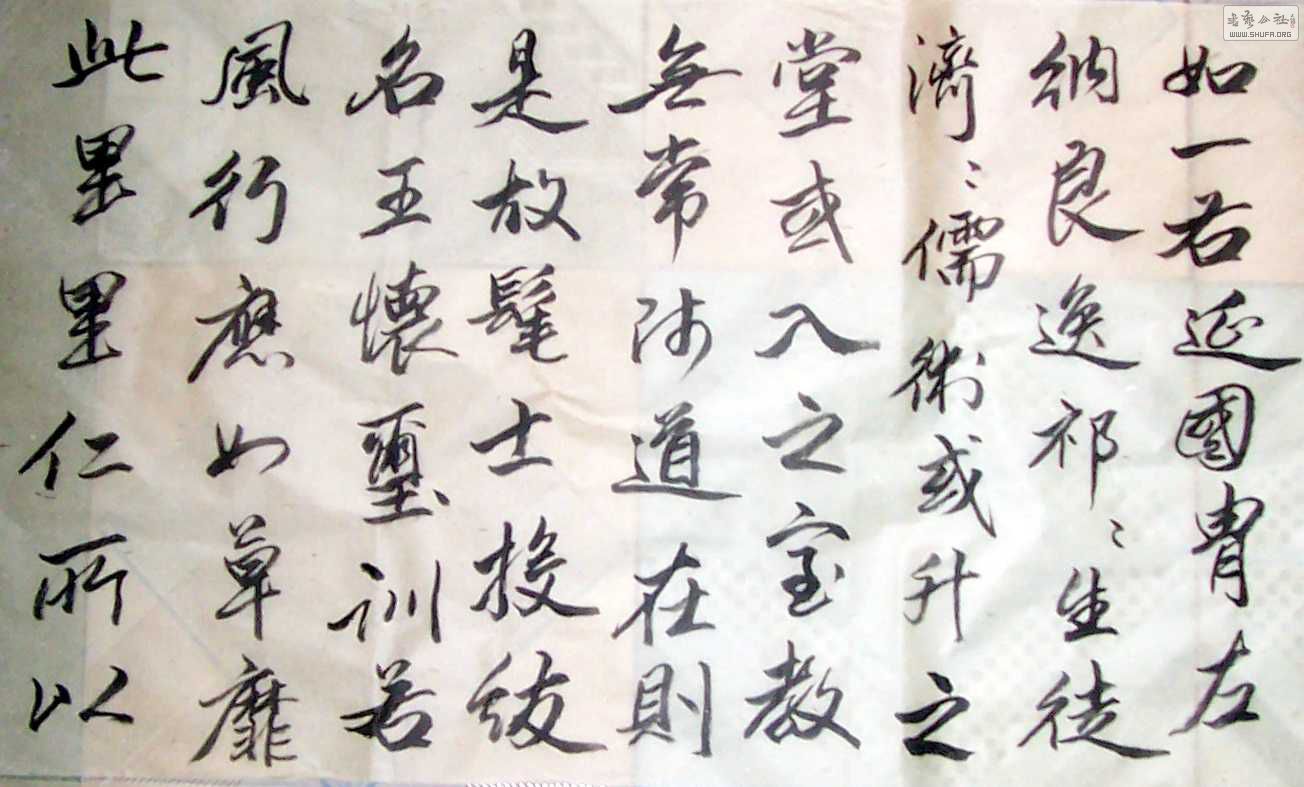 如一右延國胄左
納良逸祁〻生徒
濟〻儒術或升之
堂或入之室教
無常師道在則
是故髦士投紱
名王懷璽訓若
風行應如草靡
此里里仁所以
书艺公社
WWW.SHUFA.ORG